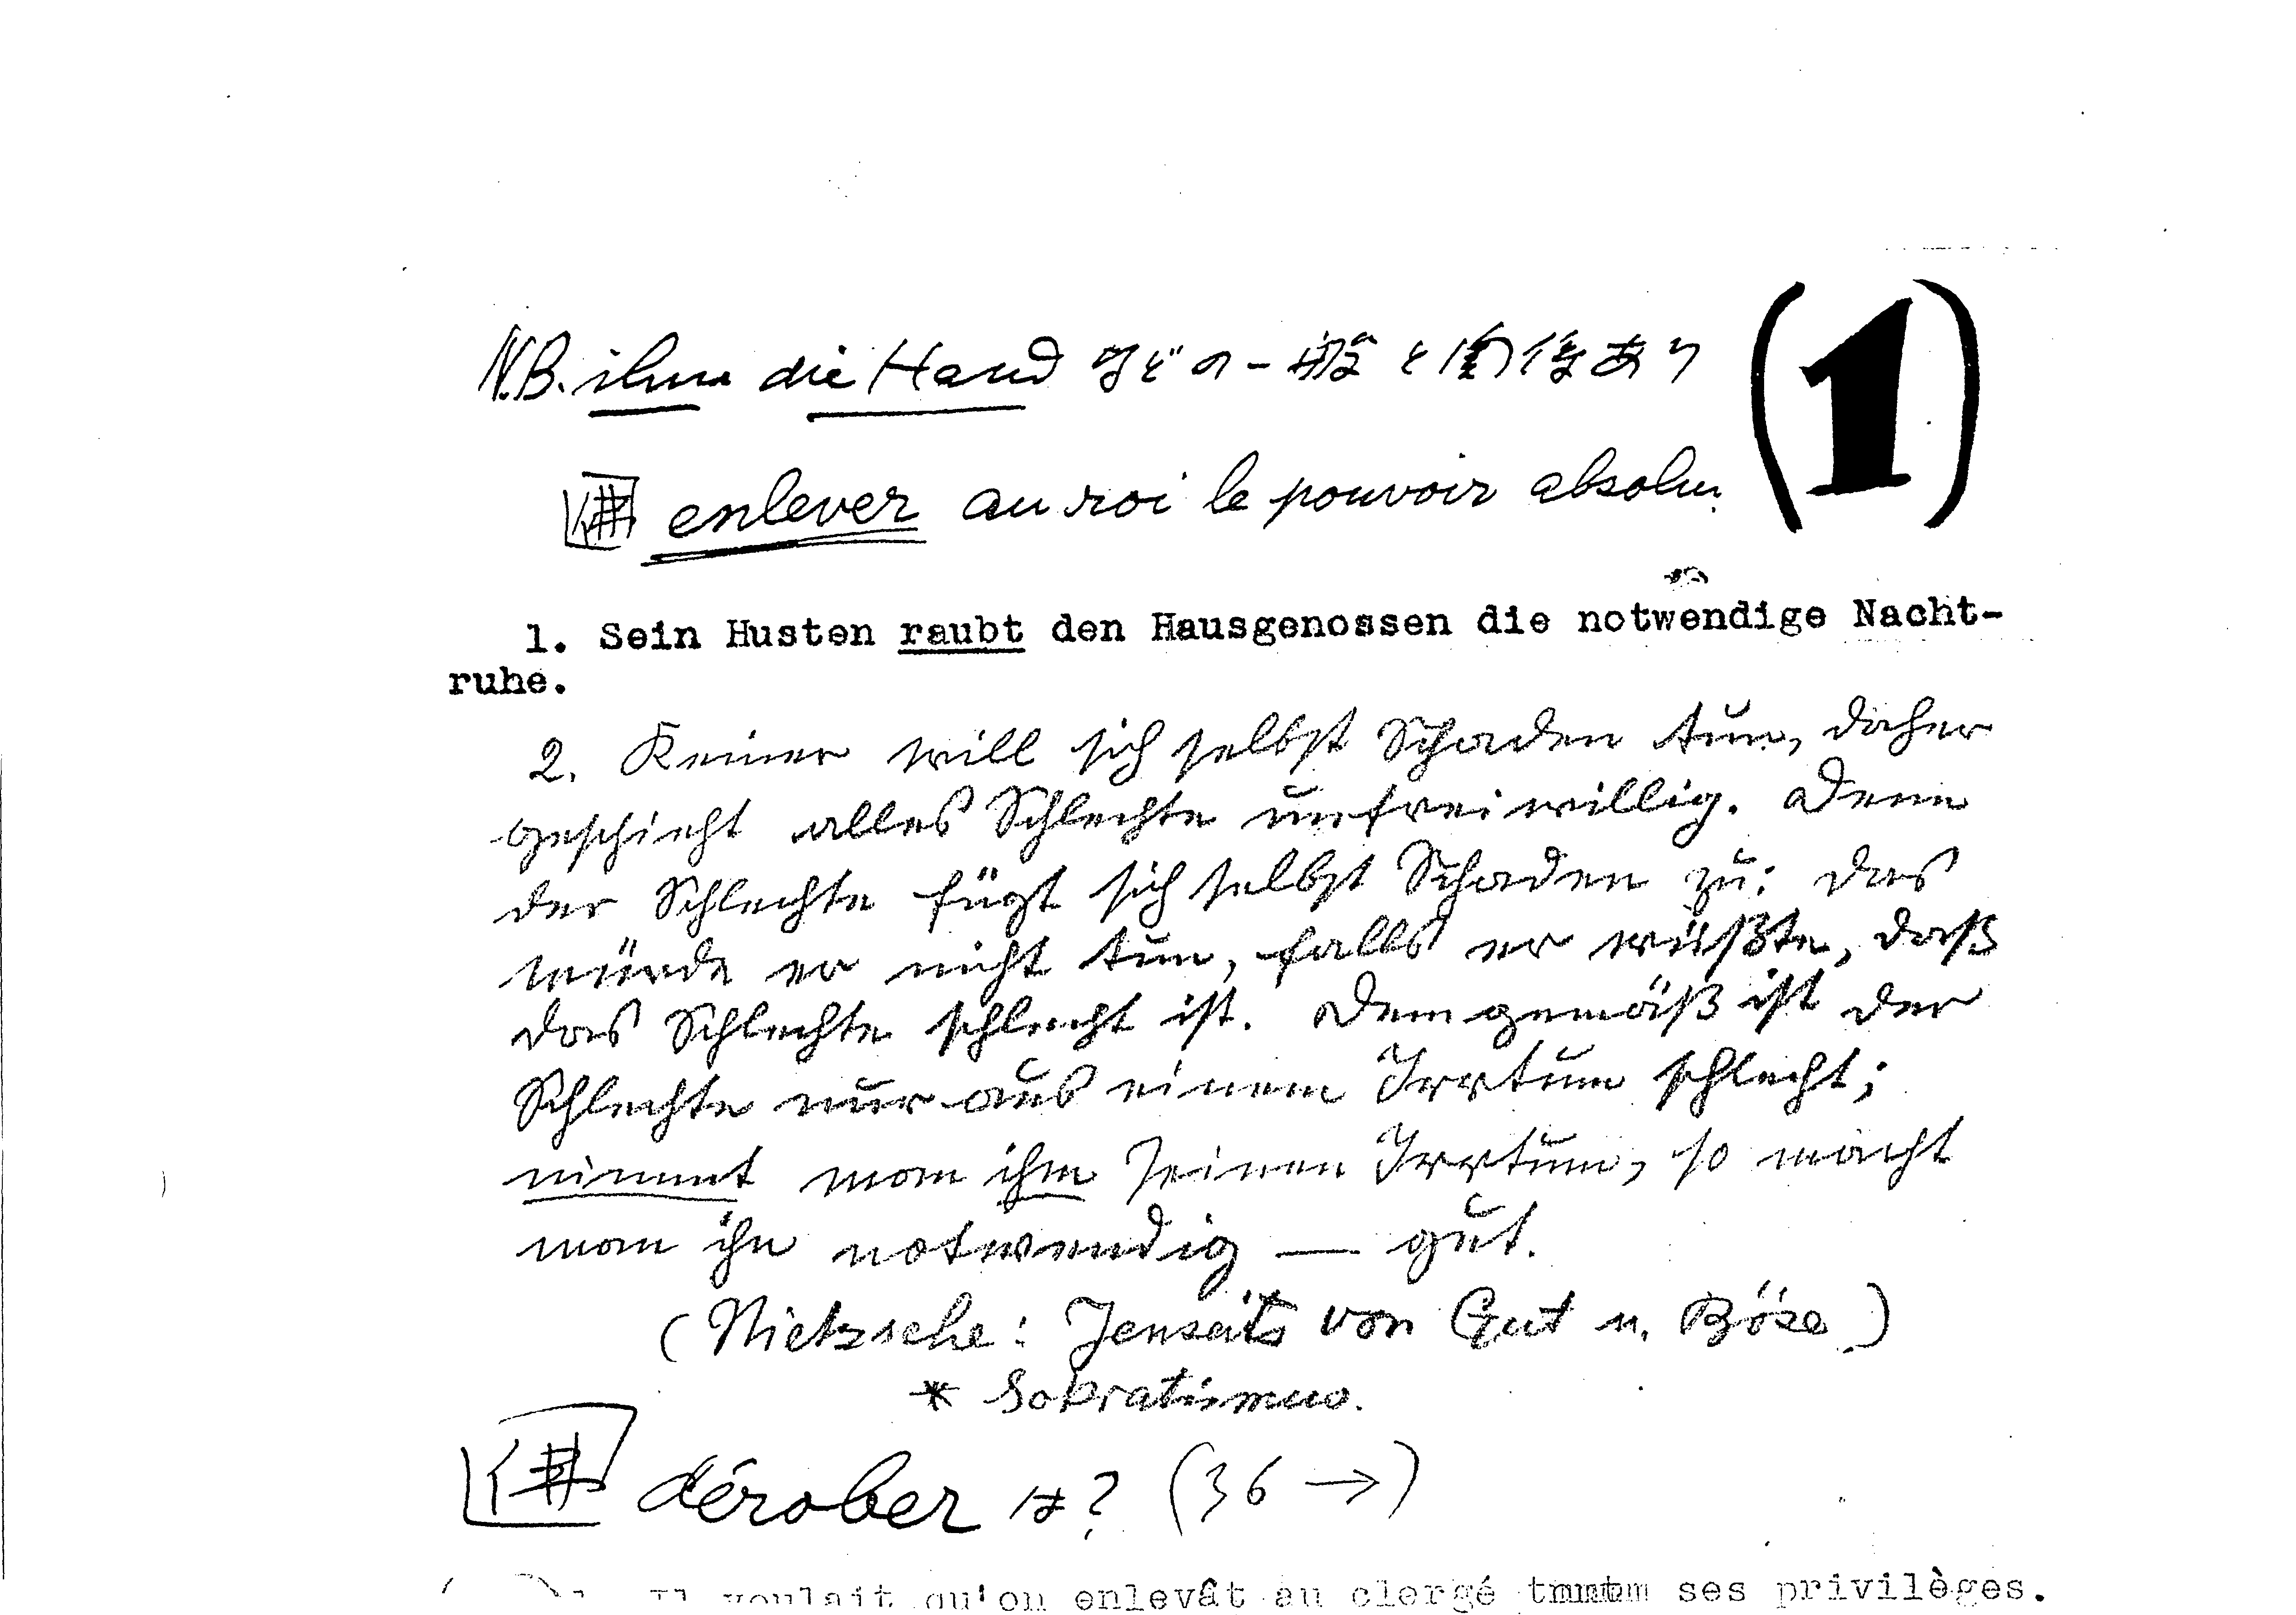 N.B. ihm die Hand などの一語と関係あり
(1)
仏 enlever au roi le pouvoir absolu.
1. Sein Husten raubt den Hausgenossen die notwendige Nacht-
ruhe.
2. Keiner will sich selbst Schaden tun, daher
geschieht alles Schlechte unfreiwillig. Denn
der Schlechte fügt sich selbst Schaden zu: das
würde er nicht tun, falls er wüßte, daß
das Schlechte schlecht ist. Demgemäß ist der
Schlechte nur aus einem Irrtum schlecht;
nimmt man ihm seinen Irrtum, so macht
man ihn notwendig — gut.
(Nietzsche: Jenseits von Gut u. Böse)
* Sokratismus.
dérober は? (36 →)
Il voulait qu'on enlevât au clergé ses privilèges.